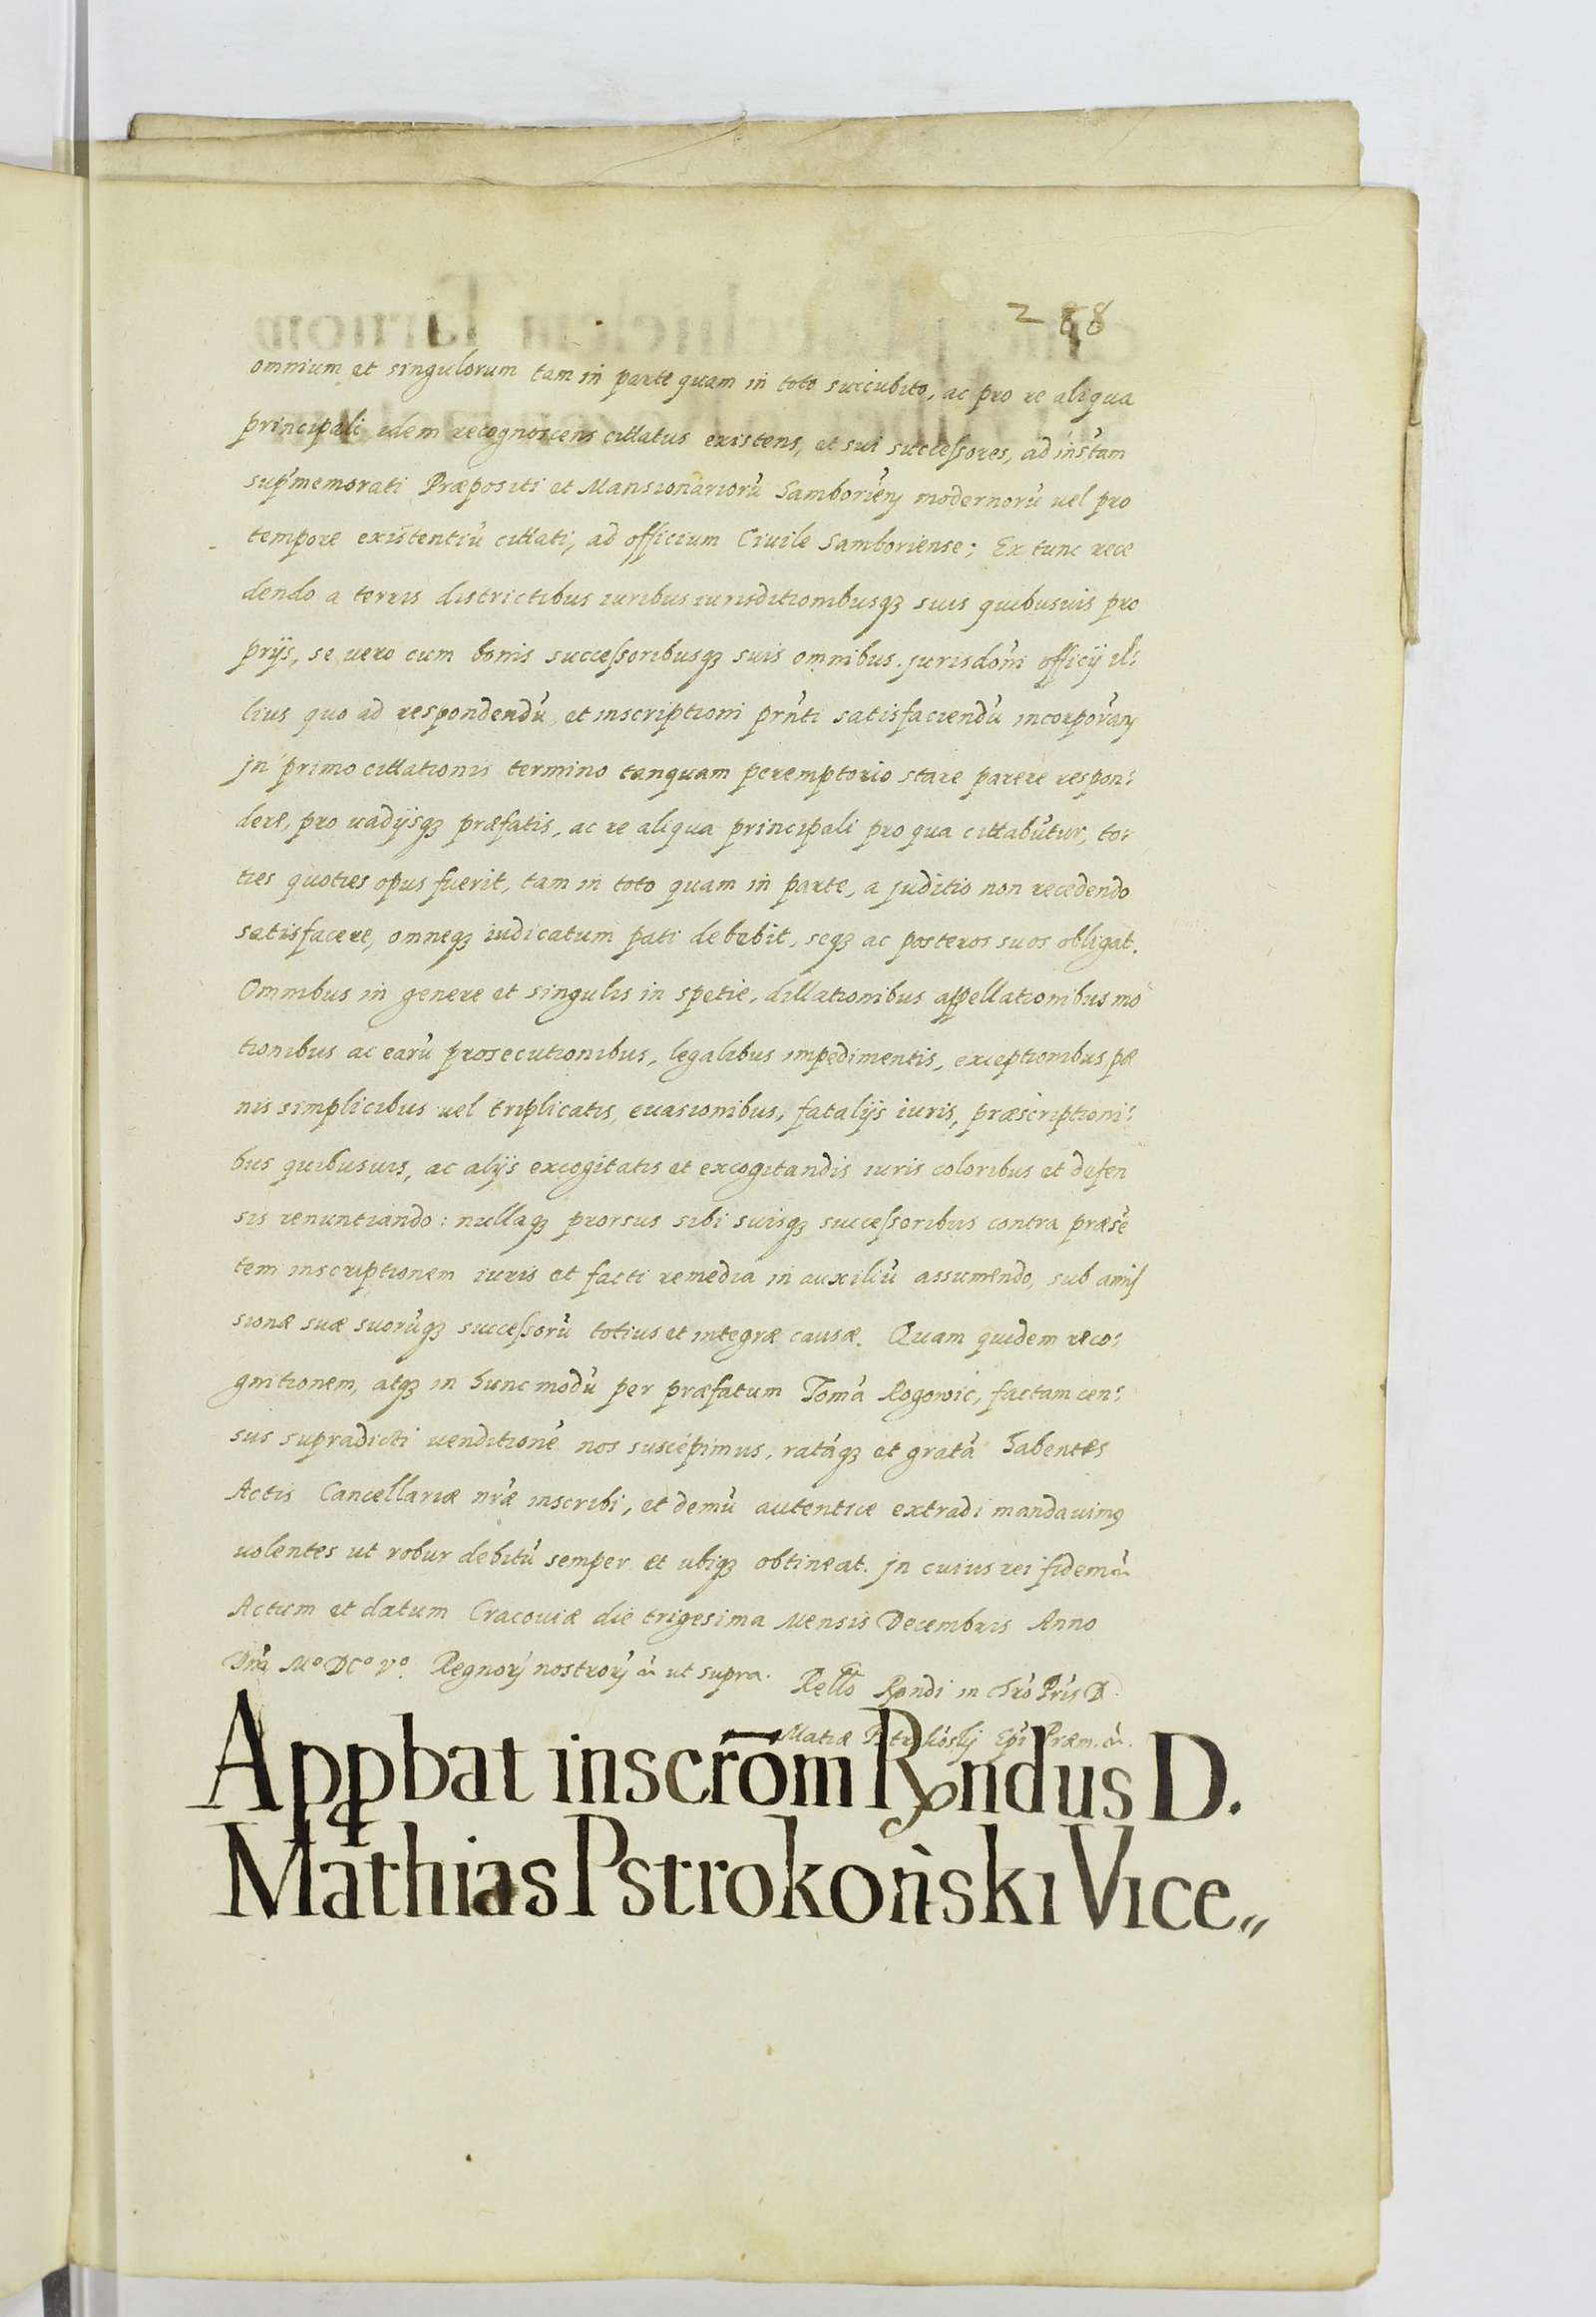 288
omnium et singulorum tam in parte quam in toto succubito, ac pro re aliqua
principali idem recognoscens citatus existens, et sui successores, ad instam
supmemorati Præpositi et Mansionariorũ Samborieñ modernorũ vel pro
tempore existentiũ citati, ad officium Civile Samboriense; Ex tunc rece
dendo a terris districtibus iuribus iurisditionibusqȝ suis quibusuis pro
prijs, se vero cum bonis successoribusqȝ suis omnibus jurisdoñi officij il:
lius quo ad respondendũ et inscriptioni prñti satisfaciendũ incorporañ
jn primo citationis termino tanquam peremptorio stare parere respon:
dere, pro vadijsqȝ præfatis, ac re aliqua principali pro qua citabũtur, to:
ties quoties opus fuerit, tam in toto quam in parte, a juditio non recedendo
satisfacere, omneqȝ iudicatum pati debebit, seqȝ ac posteros suos obligat.
Omnibus in genere et singulis in spetie, dillationibus appellationibus mo
tionibus ac earũ prosecutionibus, legalibus impedimentis, exceptionibus pæ
nis simplicibus vel triplicatis, evasionibus, fatalijs iuris, præscriptioni:
bus quibusuis, ac alijs excogitatis et excogitandis iuris coloribus et defen
sis renuntiando: nullaqȝ prorsus sibi suisqȝ successoribus contra præsẽ
tem inscriptionem iuris et facti remedia in auxiliũ assumendo, sub amis
sionæ suæ suorũqȝ successorũ totius et integræ causæ. Quam quidem reco:
gnitionem, atqȝ in hunc modũ per præfatum Tomã Rogowic, factam cen:
sus supradicti venditionẽ nos suscepimus, ratãqȝ et gratã habentes
Actis Cancellariæ nrãe inscribi, et demũ autentice extradi mandavimꝰ
volentes ut robur debitũ semper et ubiqȝ obtineat. jn cuius rei fidem &
Actum et datum Cracoviæ die trigesima Mensis Decembris Anno
Dñi Mº DCº Vº. Regnorꝝ nostrorꝝ & ut supra. Rello Rñdi in chrõ Prĩs D.
Matiæ Epĩ Præm. &.
Appbat inscrõm Rñdus D.
Mathias Pstrokoński Vice„